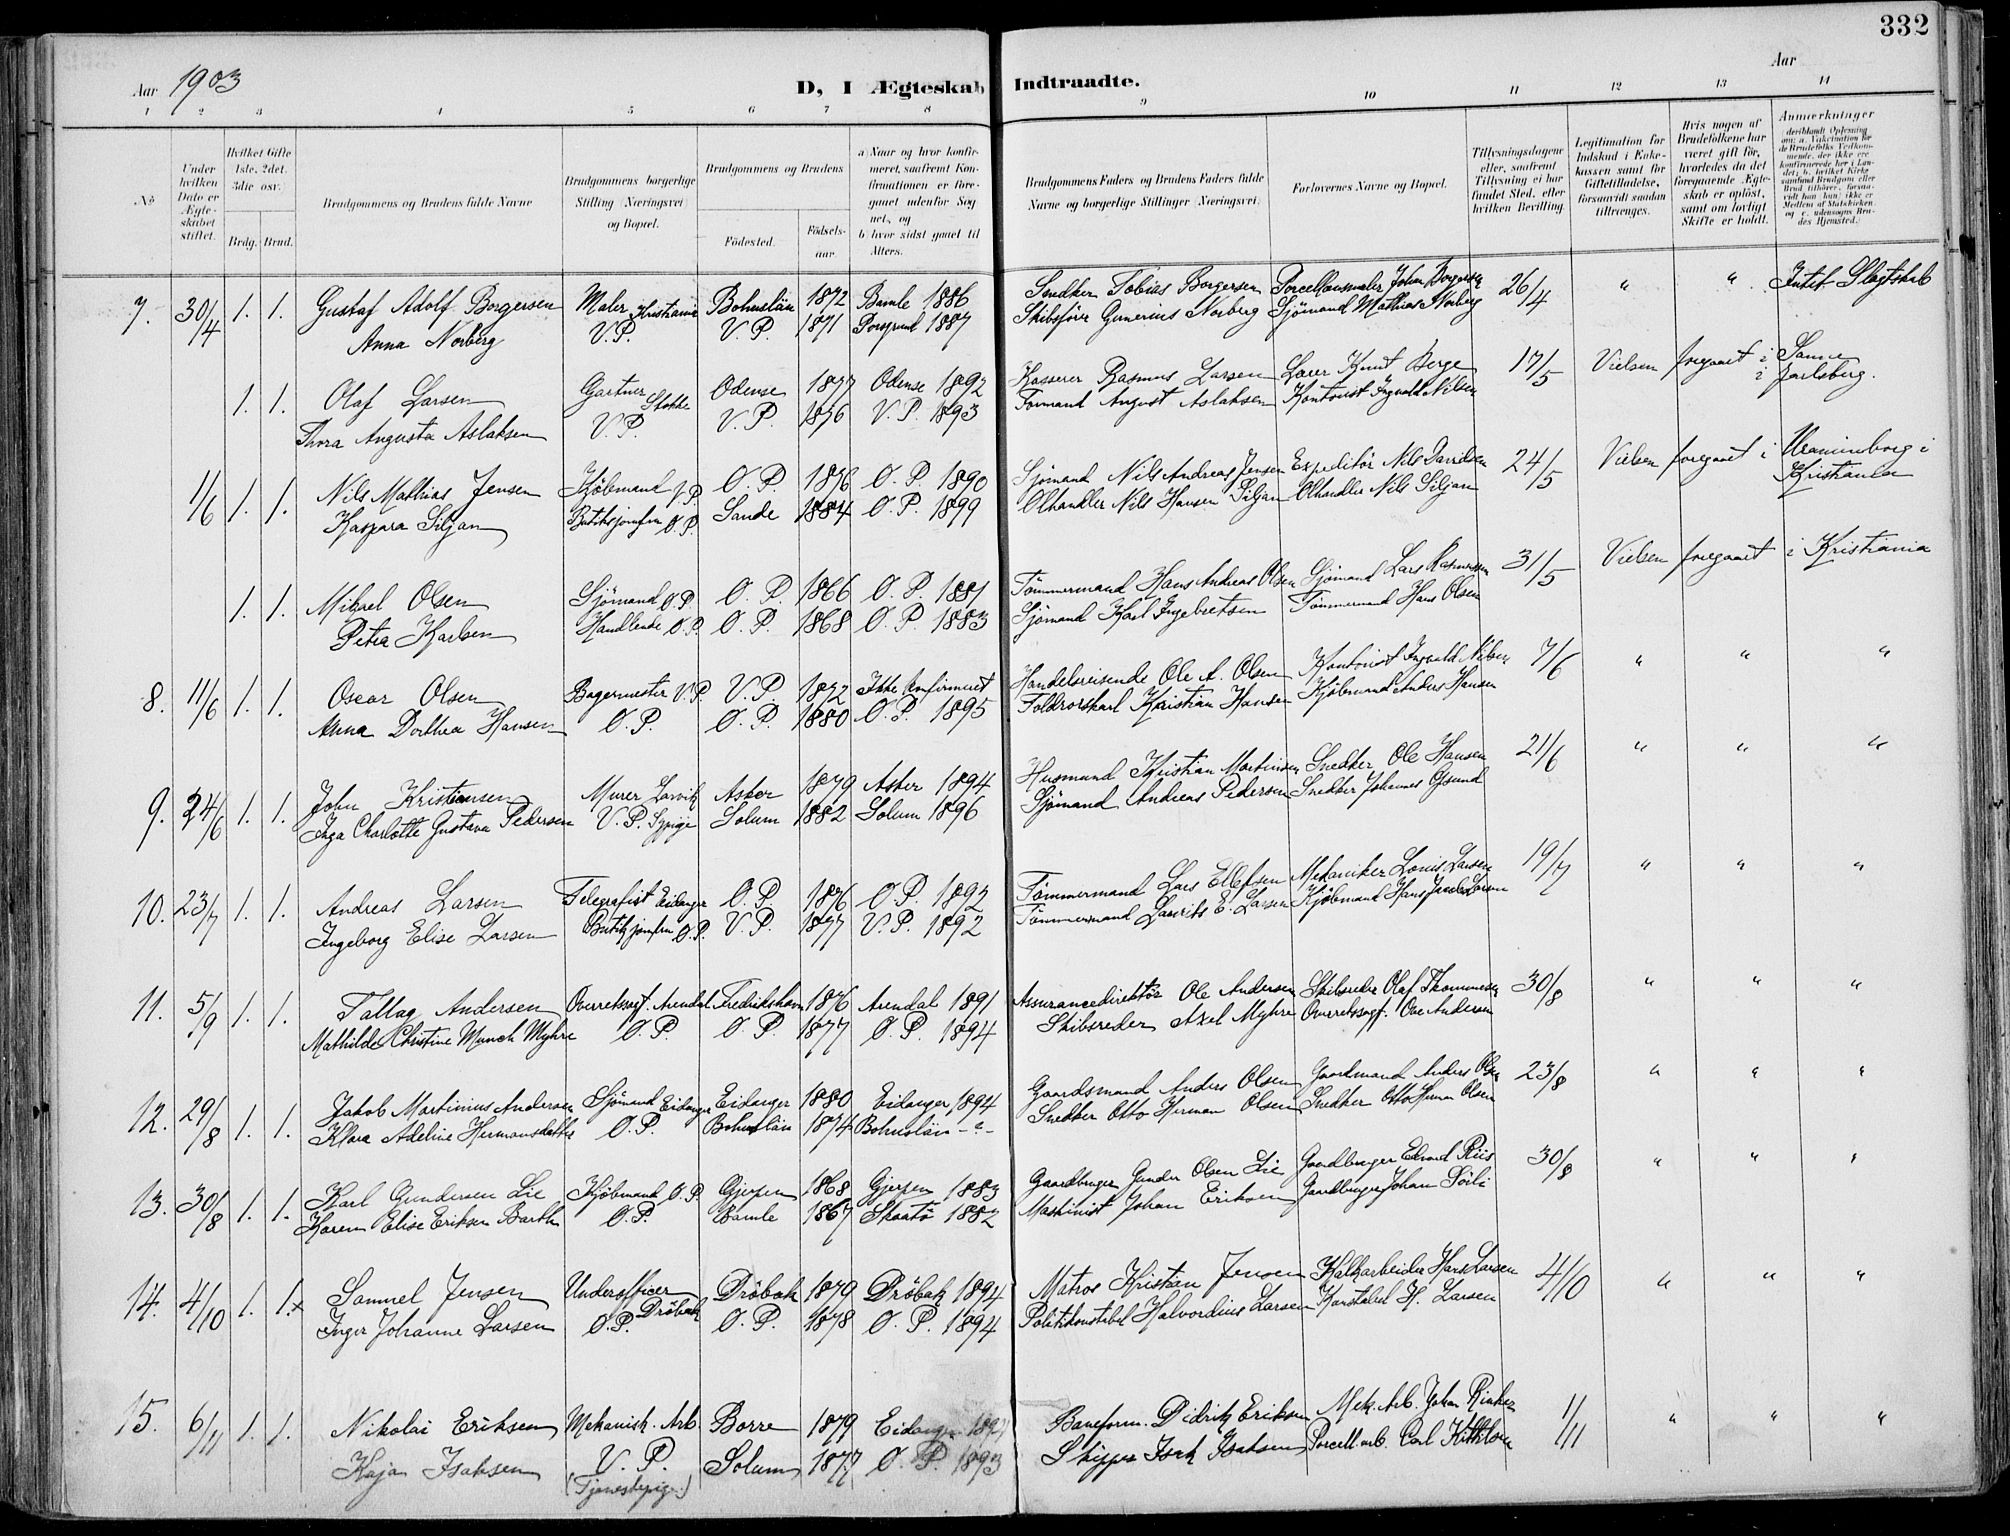 332
Aar 1903
D, I Ægteskab Indtraadte.
Aar
1 2 3 4 5 6 7 8 9 10 11 12 13 14
No
Under hvilken Dato er Ægteskabet stiftet.
Hvilket Gifte 1ste, 2det 3die osv.
Brdg. Brud.
Brudgommens og Brudens fulde Navne
Brudgommens borgerlige Stilling (Næringsvei) og Bopæl.
Brudgommens og Brudens
Födested.
Födselsaar.
a) Naar og hvor konfirmeret, saafremt Konfirmationen er foregaaet udenfor Sognet, og
b hvor sidst gaaet til Alters.
Brudgommens Faders og Brudens Faders fulde Navne og borgerlige Stillinger (Næringsvei).
Forlovernes Navne og Bopæl.
Tillysningsdagene eller, saafremt Tillysning ei har fundet Sted, efter hvilken Bevilling
Legitimation for Indskud i Enkekassen samt for Giftetilladelse, forsaavidt saadan tiltrænges.
Hvis nogen af Brudefolkene har været gift för, hvorledes da det foregaaende Ægteskab er oplöst, samt om lovligt Skifte er holdt.
Anmærkninger
7. 30/4 1. 1. Gustaf Adolf Borgersen Maler Kristiania Bohuslän 1872 Bamle 1886 Snedker Tobias Borgersen Porcellansmaler Johan Borgersen 26/4 " " Intet Slægtskab
Anna Norberg V. P. V. P. 1871 Porsgrund 1887 Skibsförer Gunerius Norberg Sjömand Mathias Norberg
1. 1. Olaf Larsen Gartner Stokke Odense 1877 Odense 1892 Kasserer Rasmus Larsen Lærer Knut Berge 17/5 Vielsen foregaaet i Sanne
Thora Augusta Aslaksen V. P. V. P. 1876 V. P. 1893 Formand August Aslaksen Kontorist Ingvald Nilsen i Jarlsberg.
1/6 1. 1. Nils Mathias Jensen Kjöbmand V. P. O. P. 1876 O. P. 1890 Sjömand Nils Andreas Jensen Expeditör Nils Davidsen 24/5 Vielsen foregaaet i Uranienborg i
Kaspara Siljan Butiksjomfru O. P. Sande 1884 O. P. 1899 Ölhandler Nils Hansen Siljan Ölhandler Nils Siljan Kristiania
1. 1. Mikael Olsen Sjömand O. P. O. P. 1866 O. P. 1881 Tömmermand Hans Andreas Olsen Sjömand Lars Rasmussen 31/5 Vielsen foregaaet i Kristiania
Petra Karlsen Handlende O. P. O. P. 1868 O. P. 1883 Sjömand Karl Ingebretsen Tömmermand Hans Olsen
8. 11/6 1. 1. Oscar Olsen Bagermester V. P. V. P. 1872 Ikke konfirmeret Handelsreisende Ole A. Olsen Kontorist Ingvald Nilsen 7/6 " " "
Anna Dorthea Hansen O. P. O. P. 1880 O. P. 1895 Toldrorskarl Kristian Hansen Kjöbmand Anders Hansen
9. 24/6 1. 1. John Kristiansen Murer Larvik Asker 1879 Asker 1894 Husmand Kristian Martinsen Snedker Ole Hansen 21/6 " " "
Inga Charlotte Gustava Pedersen V. P. Sypige Solum 1882 Solum 1896 Sjömand Andreas Pedersen Snedker Johannes Gjsund
10. 23/7 1. 1. Andreas Larsen Telegrafist Eidanger O. P. 1876 O. P. 1892 Tömmermand Lars Ellefsen Mekaniker Louis Larsen 19/7 " " "
Ingeborg Elise Larsen Butikjomfru O. P. V. P. 1877 V. P. 1892 Tömmermand Laurits E. Larsen Kjöbmand Hans Jacob Larsen
11. 5/9 1. 1. Tallag Andersen Overretssagf. Arendal Fredrikshavn 1876 Arendal 1891 Assurancedirektör Ole Andersen Skibsreder Olaf Thommesen 30/8 " " "
Mathilde Christine Munch Myhre O. P. O. P. 1877 O. P. 1894 Skibsreder Axel Myhre Overretssagf. Ove Andersen
12. 29/8 1. 1. Jakob Martinius Andersen Sjömand Eidanger Eidanger 1880 Eidanger 1894 Gaardsmand Anders Olsen Gaardmand Anders Olsen 23/8 " " "
Klara Adeline Hermansdatter O. P. Bohuslän 1874 Bohuslän -?- Snedker Otto Herman Olsen Snedker Otto Herman Olsen
13. 30/8 1. 1. Karl Gundersen Lie Kjöbmand O. P. Gjerpen 1868 Gjerpen 1883 Gaardbruger Gunder Olsen Lie Gaardbruger Edvard Riis 30/8 " " "
Karen Elise Eriksen Barth O. P. Bamle 1867 Skaatö 1882 Maskinist Johan Eriksen Gaardbruger Johan Söli
14. 4/10 1. 1. x Samuel Jensen Underofficer Dröbak Dröbak 1879 Dröbak 1894 Matros Kristian Jensen Kalkarbeider Hans Larsen 4/10 " " "
Inger Johanne Larsen O. P. O. P. 1878 O. P. 1894 Politikonstabel Halvordius Larsen Konstabel H. Larsen
15. 6/11 1. 1. Nikolai Eriksen Mekanisk. Arb. Borre 1879 Eidanger Baneform. Didrik Eriksen Mek. Arb. Johan 1/11 " " "
Kaja Isaksen V. P. Solum 1877 O. P. 1893 Skipper Isak Isaksen Porcell. arb. Carl Kittilsen
(Tjenestepige)